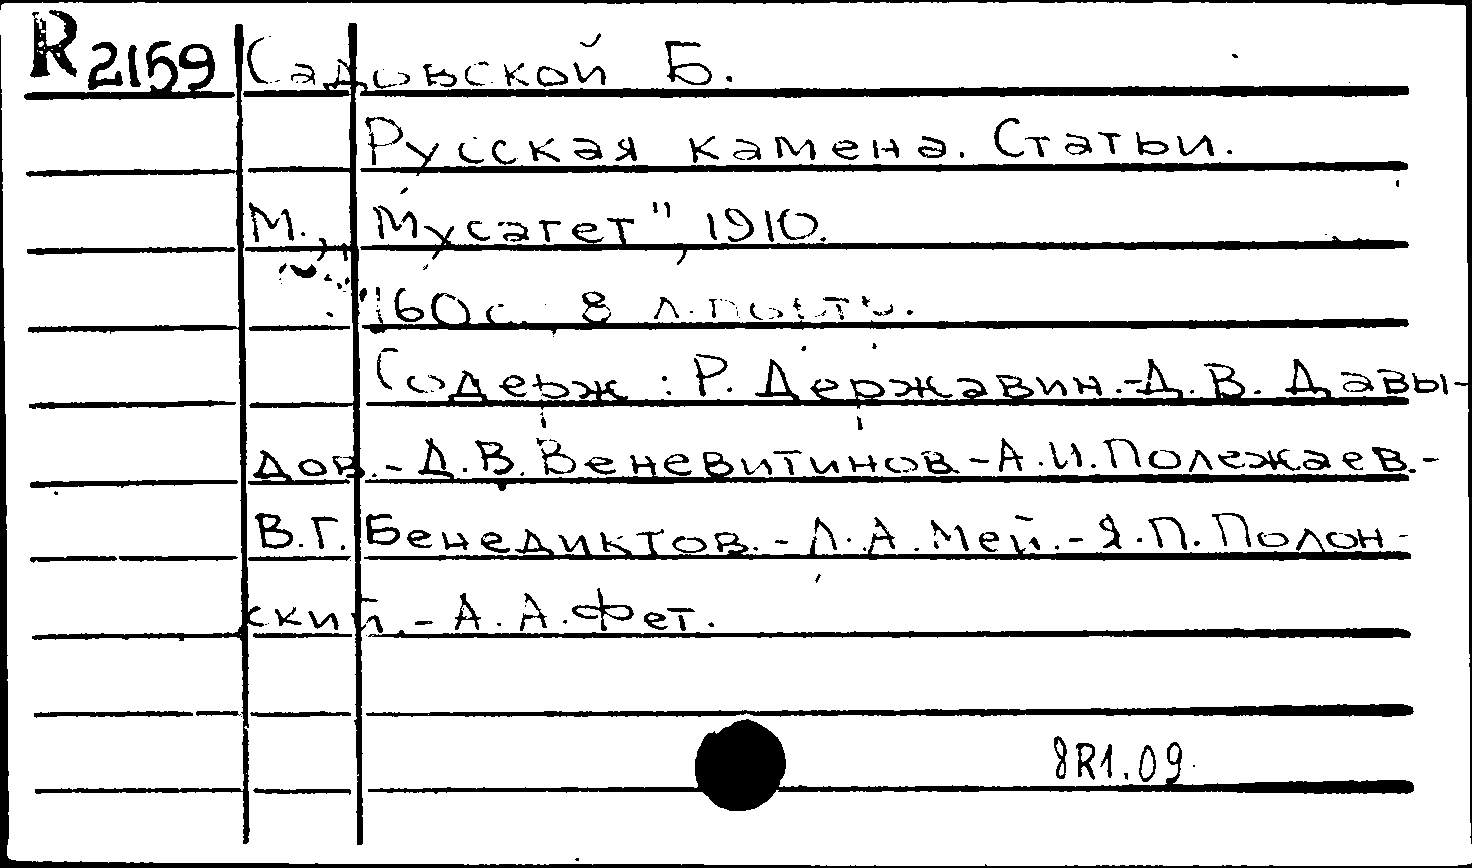 R 2159 Садовской Б.
Русская камена. Статьи.
М., „Мусагет", 1910.
160 с. 8 л.портр.
Содерж: Р. Державин.-Д.В. Давы-
дов.-Д.В.Веневитинов-А.И.Полежаев.-
В.Г.Бенедиктов.-Л.А.Мей.-Я.П.Полон-
ский.-А.А.Фет.
8R1.09